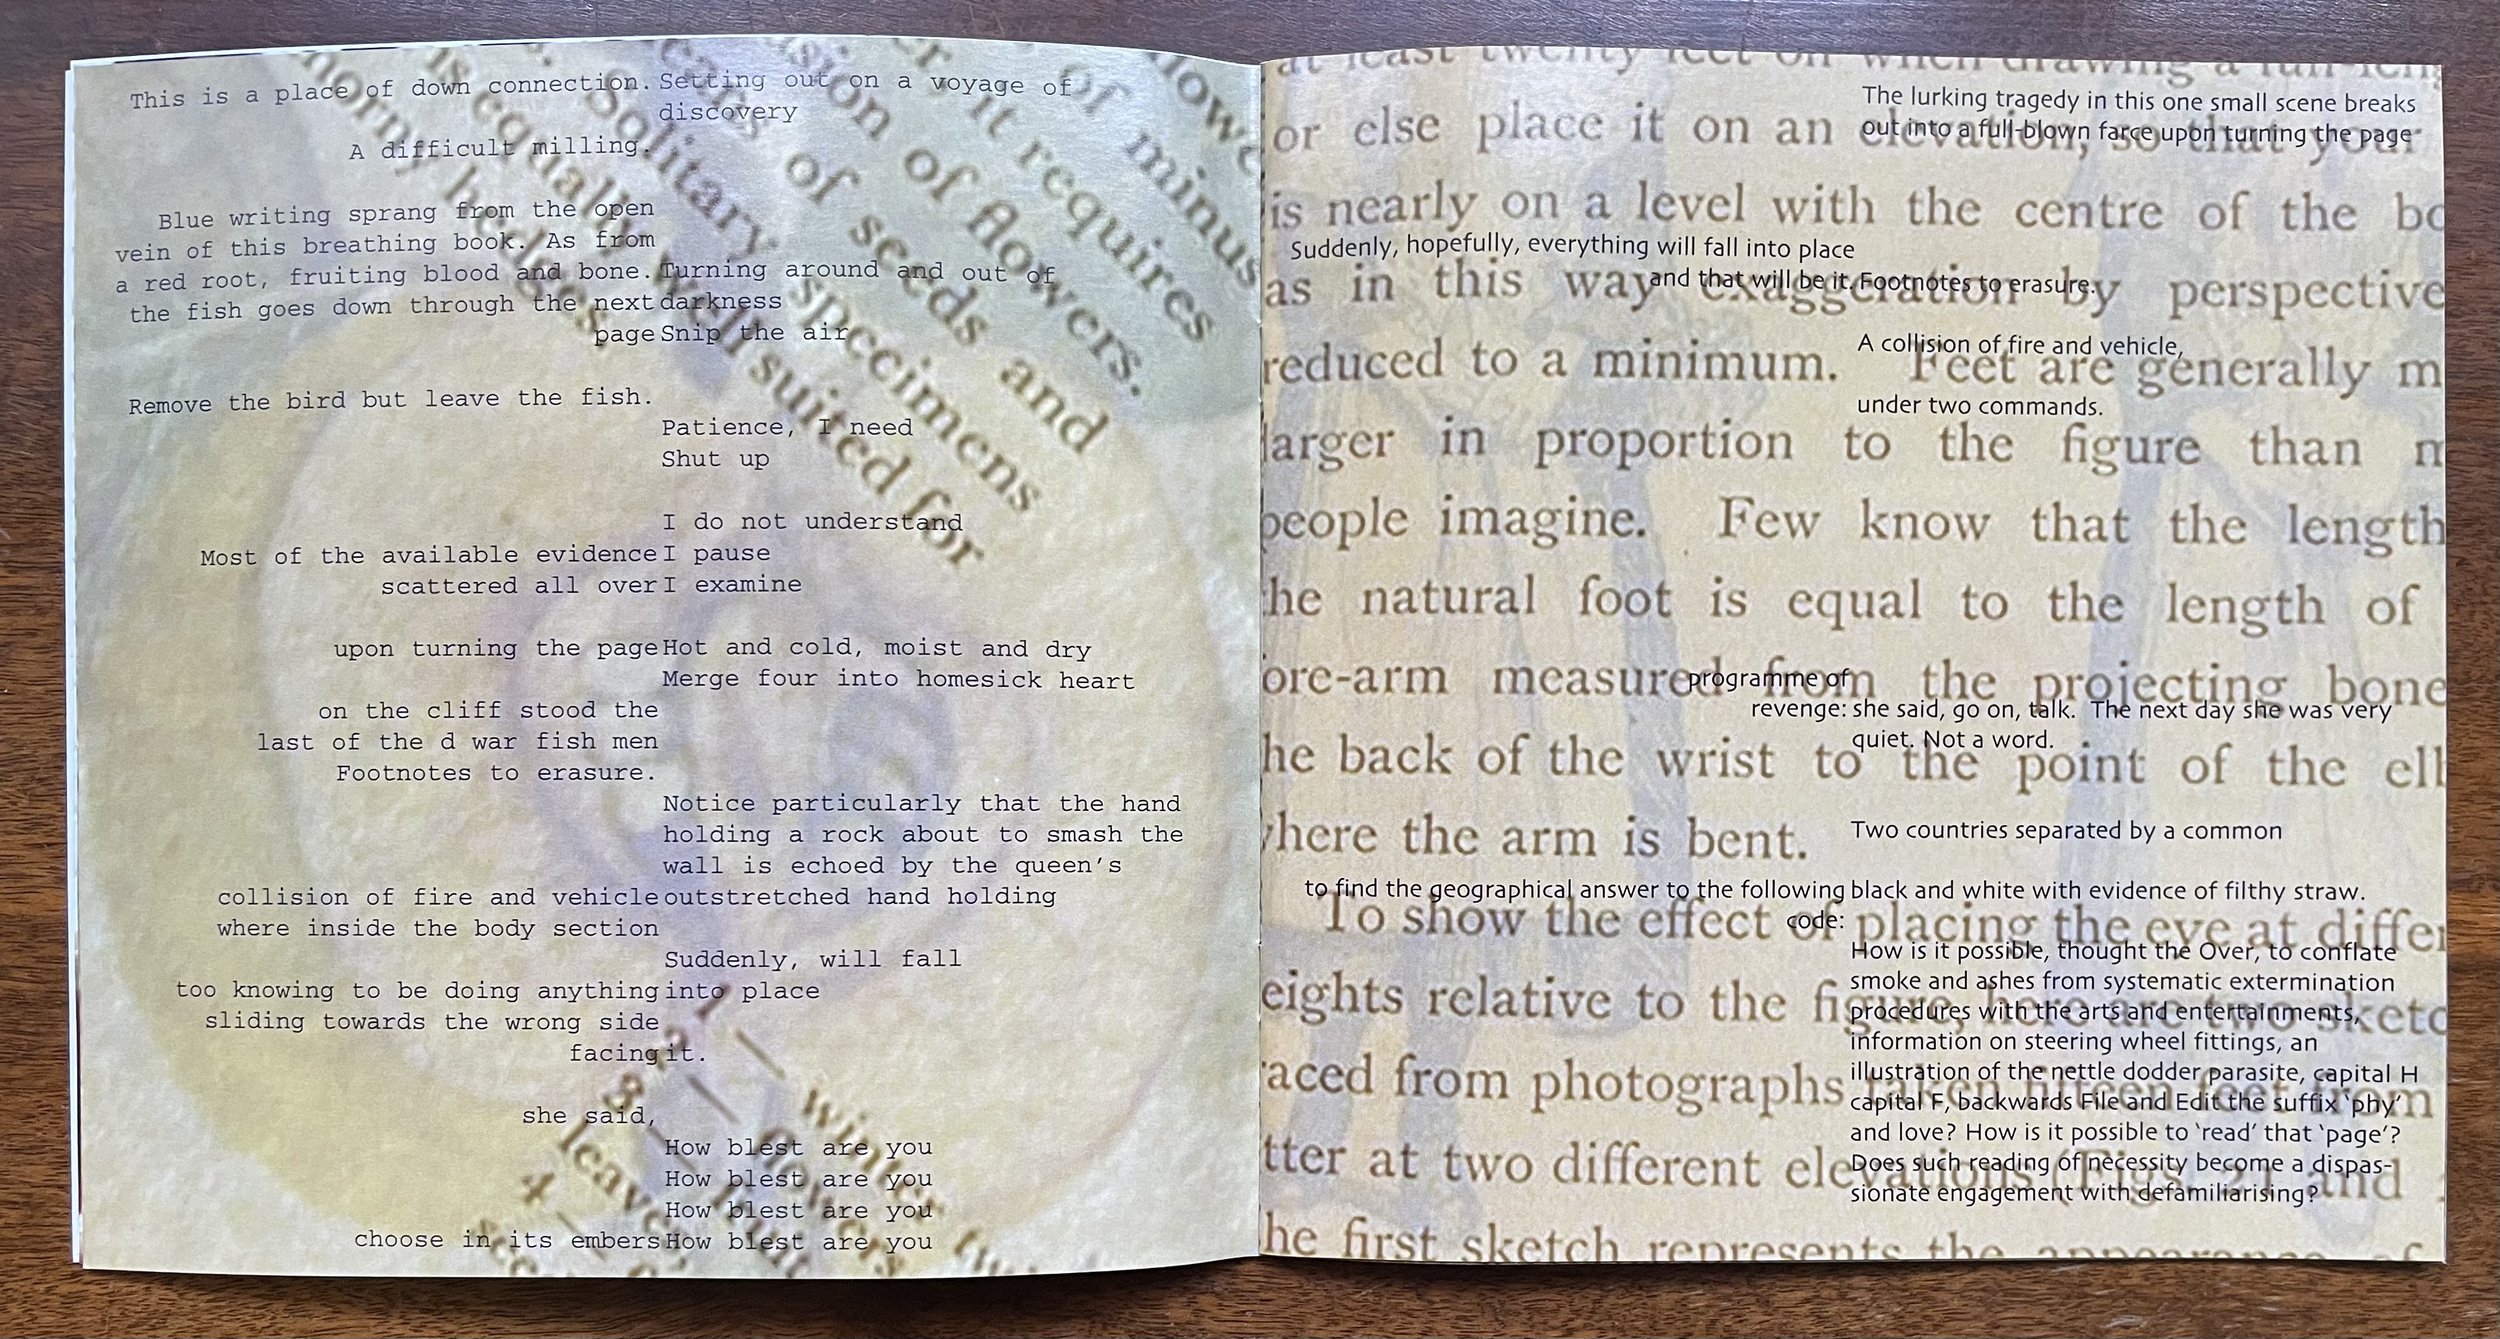 This is a place of down connection. Setting out on a voyage of
discovery
A difficult milling.
Blue writing sprang from the open
vein of this breathing book. As from
a red root, fruiting blood and bone. Turning around and out of
the fish goes down through the next darkness
page Snip the air
Remove the bird but leave the fish.
Patience, I need
Shut up
I do not understand
Most of the available evidence I pause
scattered all over I examine
upon turning the page Hot and cold, moist and dry
Merge four into homesick heart
on the cliff stood the
last of the d war fish men
Footnotes to erasure.
Notice particularly that the hand
holding a rock about to smash the
wall is echoed by the queen's
collision of fire and vehicle outstretched hand holding
where inside the body section
Suddenly, will fall
too knowing to be doing anything into place
sliding towards the wrong side
facing it.
she said,
How blest are you
How blest are you
How blest are you
choose in its embers How blest are you
of minus
it requires
of flowers.
of seeds and
Solitary specimens
is equally well suited for
thorny hedges
1 — winter
2 — flowers
3 — fruit
leaves
4 —
The lurking tragedy in this one small scene breaks
out into a full-blown farce upon turning the page
Suddenly, hopefully, everything will fall into place
and that will be it. Footnotes to erasure.
A collision of fire and vehicle,
under two commands.
programme of
revenge: she said, go on, talk. The next day she was very
quiet. Not a word.
Two countries separated by a common
to find the geographical answer to the following black and white with evidence of filthy straw.
code:
How is it possible, thought the Over, to conflate
smoke and ashes from systematic extermination
procedures with the arts and entertainments,
information on steering wheel fittings, an
illustration of the nettle dodder parasite, capital H
capital F, backwards File and Edit the suffix 'phy'
and love? How is it possible to 'read' that 'page'?
Does such reading of necessity become a dispas-
sionate engagement with defamiliarising?
at least twenty feet off when drawing a full
or else place it on an elevation, so that your
is nearly on a level with the centre of the
as in this way exaggeration by perspective
reduced to a minimum. Feet are generally
larger in proportion to the figure than
people imagine. Few know that the length
he natural foot is equal to the length of
ore-arm measured from the projecting bone
he back of the wrist to the point of the
here the arm is bent.
To show the effect of placing the eye at
eights relative to the figure, here are two
aced from photographs taken fifteen feet from
tter at two different elevations (Figs. 2) and
he first sketch represents the appearance of